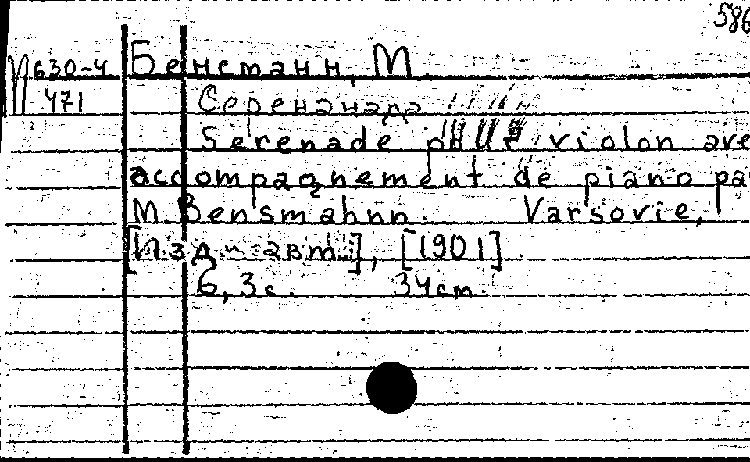 586
М 630-4 Бенсман н, М.
471 Серенада
Serenade pour violon ave
accompagnement de piano pa
M. Bensmahnn. Varsovie,
[Изд. авт.], [1901].
6, 3 с. 34 cm.